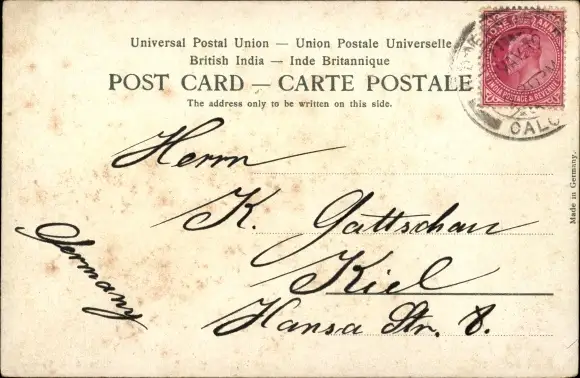 Universal Postal Union — Union Postale Universelle
British India — Inde Britannique
POST CARD — CARTE POSTALE
The address only to be written on this side.
ONE ANNA
INDIA POSTAGE & REVENUE
CALC
Herrn
K. Gattschau
Kiel
Hansa Str. 8.
Germany
Made in Germany.